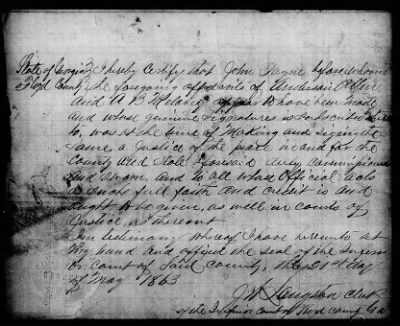 State of Georgia } I hereby Certify that John Payne before whom
Floyd County } the foregoing affidavits of Anderson
and A B appear to have been made
and whose genuine Signatures is to
to, was at the time of Making and Signing the
Same a Justice of the peace in and for the
County and State aforesaid duly commissioned
and sworn, and to all whose Official Acts
as Such full faith and credit is and
ought to be given, as well in courts of
Justice as thereout
In testimony whereof I have hereunto set
My hand and affixed the seal of the Inferior
court of Said county, this 21st day
of May 1863
J W Langston Clerk
of the Inferior court of Floyd county Ga